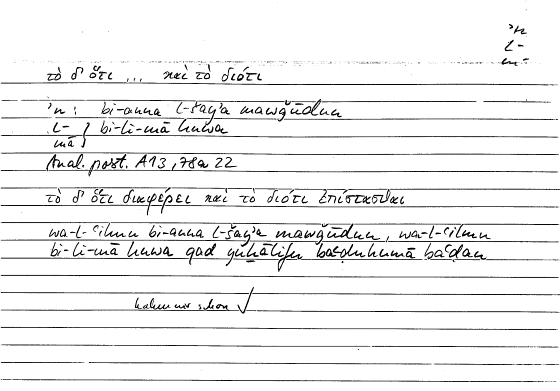 ʾn
l-
m-
τὸ δ' ὅτι ... καὶ τὸ διότι
ʾn : bi-anna l-šayʾa mawǧūdun
l- } bi-li-mā huwa
mā
Anal. post. A13, 78a 22
τὸ δ' ὅτι διαφέρει καὶ τὸ διότι ἐπίστασθαι
wa-l-ʿilmu bi-anna l-šayʾa mawǧūdun, wa-l-ʿilmu
bi-li-mā huwa qad yuḫālifu baʿḍuhumā baʿḍan
haben wir schon ✓